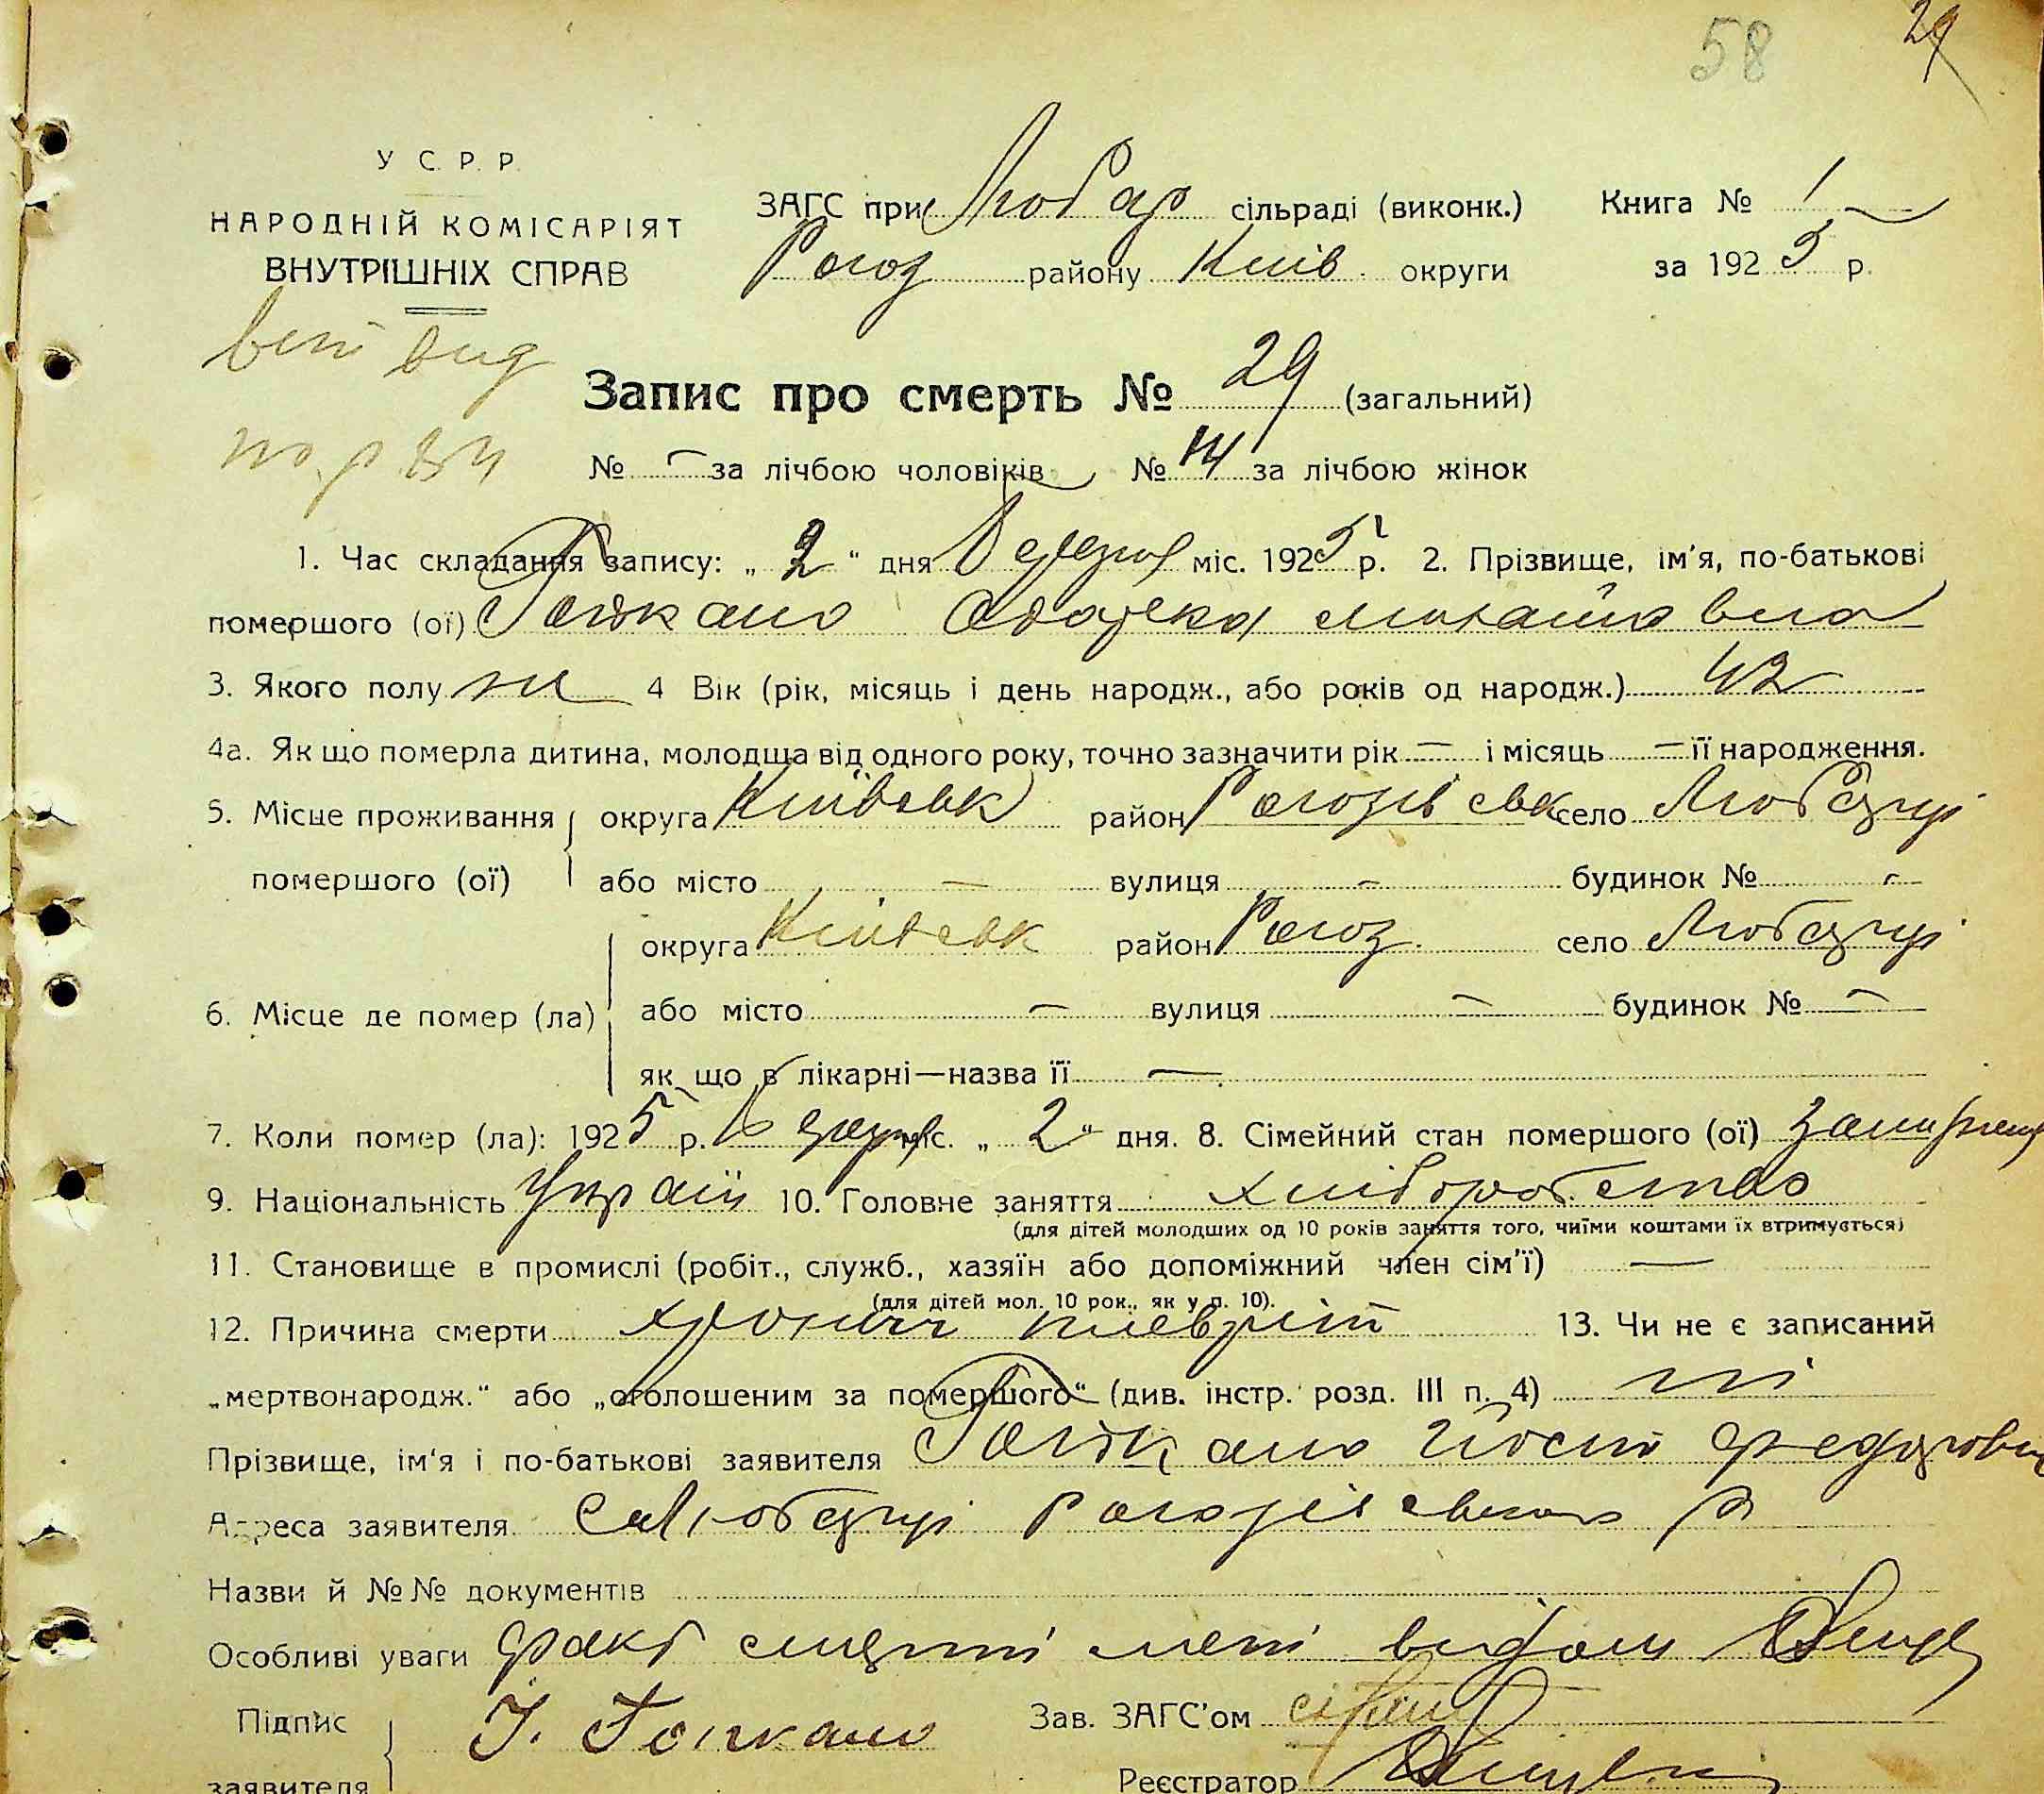 58 29
У С. Р. Р.
НАРОДНІЙ КОМІСАРІЯТ
ВНУТРІШНІХ СПРАВ
ЗАГС при Любар сільраді (виконк.) Книга № 1
Рогоз району Київ. округи за 1925 р.
Запис про смерть № 29 (загальний)
№ – за лічбою чоловіків № 14 за лічбою жінок
1. Час складання запису: „ 2 “ дня Березня міс. 1925 р. 2. Прізвище, ім'я, по-батькові
помершого (ої) Одарка Михайловна
3. Якого полу ж 4 Вік (рік, місяць і день народж., або років од народж.) 42
4а. Як що померла дитина, молодща від одного року, точно зазначити рік — і місяць — її народження.
5. Місце проживання округа Київськ район Рогозівськ село Любарці
помершого (ої) або місто — вулиця – будинок № -
округа Київськ район Рогоз. село Любарці
6. Місце де помер (ла) або місто — вулиця — будинок № —
як що в лікарні—назва її —
7. Коли помер (ла): 1925 р. міс. „ 2 “ дня. 8. Сімейний стан помершого (ої)
9. Національність Україн 10. Головне заняття хліборобство
(для дітей молодших од 10 років заняття того, чиїми коштами їх втримується)
11. Становище в промислі (робіт., служб., хазяїн або допоміжний член сім'ї) —
(для дітей мол. 10 рок., як у п. 10).
12. Причина смерти хронич плевріт 13. Чи не є записаний
„мертвонародж.“ або „оголошеним за помершого“ (див. інстр. розд. III п. 4) ні
Прізвище, ім'я і по-батькові заявителя
Адреса заявителя с Любарці Рогозівського р
Назви й №№ документів
Особливі уваги факт смерті мені відом
Підпис
заявителя
Зав. ЗАГС'ом
Реєстратор